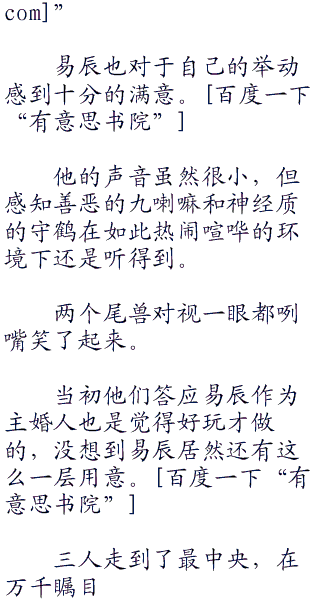 com]”
易辰也对于自己的举动
感到十分的满意。[百度一下
“有意思书院”]
他的声音虽然很小，但
感知善恶的九喇嘛和神经质
的守鹤在如此热闹喧哗的环
境下还是听得到。
两个尾兽对视一眼都咧
嘴笑了起来。
当初他们答应易辰作为
主婚人也是觉得好玩才做
的，没想到易辰居然还有这
么一层用意。[百度一下“有
意思书院”]
三人走到了最中央，在
万千瞩目